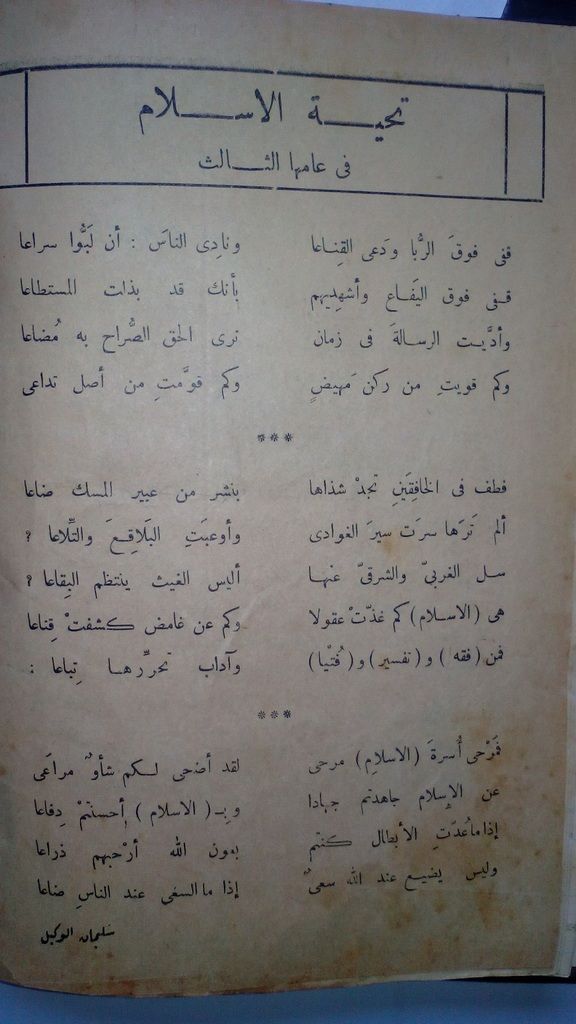 تحيـــة الاســـلام
فى عامها الثـــالث
قفى فوقَ الرُّبا وَدعى القِنـاعا ونادِى الناسَ : أن لَبُّوا سراعا
قـفى فوق اليَفـاع وأشهِدِيهم بأنك قد بذلت المستطاعا
وأدَّيـت الرسـالةَ فى زمان ترى الحق الصُّراح به مُضاعا
وكم قويتِ من ركن مَهيضٍ وكم قوَّمتِ من أصل تداعى
***
فطف فى الخافِقَينِ تجدْ شذاها بنشر من عبير المسك ضاعا
ألم تَرَها سرَت سيرَ الغوادى وأوعبَتِ البَلاقِـعَ والتِّلاعا ؟
سـل الغربىّ والشرقىّ عنهـا أليس الغيث ينتظم البِقاعا ؟
هى (الاسـلام) كم غذّتْ عقولا وكم عن غامض كشفتْ قِناعا
فمن (فقه) و (تفسير) و (فُتْيا) وآداب تحرِّرهـا تِباعا :
***
فَمَرْحى أُسرةَ (الاسلامِ) مرحى لقد أضحى لـكم شأوٌ مراعَى
عن الإسلام جاهدتم جهادا وبـ(الاسلام) أحسنتمْ دِفاعا
إذا ماعُدّتِ الأبطال كنتم بعون الله أرْحبهم ذراعا
وليس يضيـع عند الله سعىٌ إذا ما السعى عند الناسِ ضاعا
سليمان الوكيل